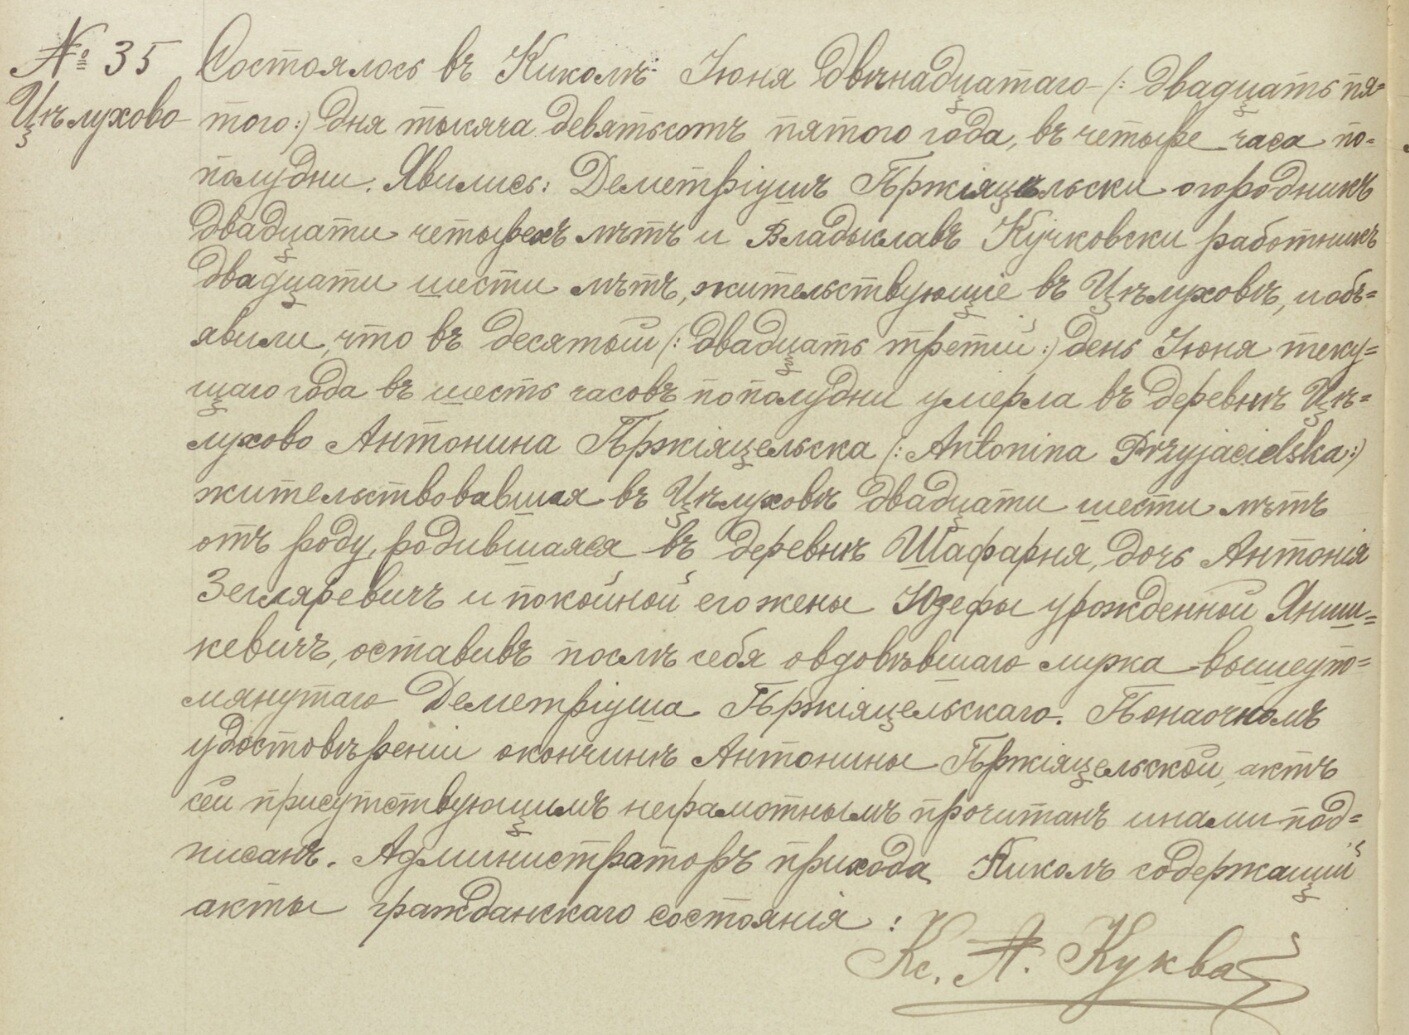 № 35
Цѣлухово
Состоялось въ Киколѣ Іюня двѣнадцатаго (: двадцать пя-
того:) дня тысяча девятьсотъ пятого года, въ четыре часа по-
полудни. Явились: Деметріушъ Пржіяцѣльски огородникъ
двадцати четырехъ лѣтъ и Владыславъ Кучковски работникъ
двадцати шести лѣтъ, жительствующіе въ Цѣлуховѣ, и объ-
явили, что въ десятый (: двадцать третій :) день Іюня теку-
щаго года въ шесть часовъ пополудни умерла въ деревнѣ Цѣ-
лухово Антонина Пржіяцельска (: Antonina Przyjacielska:)
жительствовавшая въ Цѣлуховѣ двадцати шести лѣтъ
отъ роду, родившаяся въ деревнѣ Шафарня, дочь Антонія
Зегляревичъ и покойной его жены Юзефы урожденной Яниш-
кевичъ, оставивъ послѣ себя овдовѣвшаго мужа вышеупо-
мянутаго Деметріуша Пржіяцельскаго. По наочномъ
удостовѣреніи о кончинѣ Антонины Пржіяцельской, актъ
сей присутствующимъ неграмотнымъ прочитанъ и нами под-
писанъ. Администраторъ прихода Киколъ содержащій
акты гражданскаго состоянія :
Кс. А. Куква